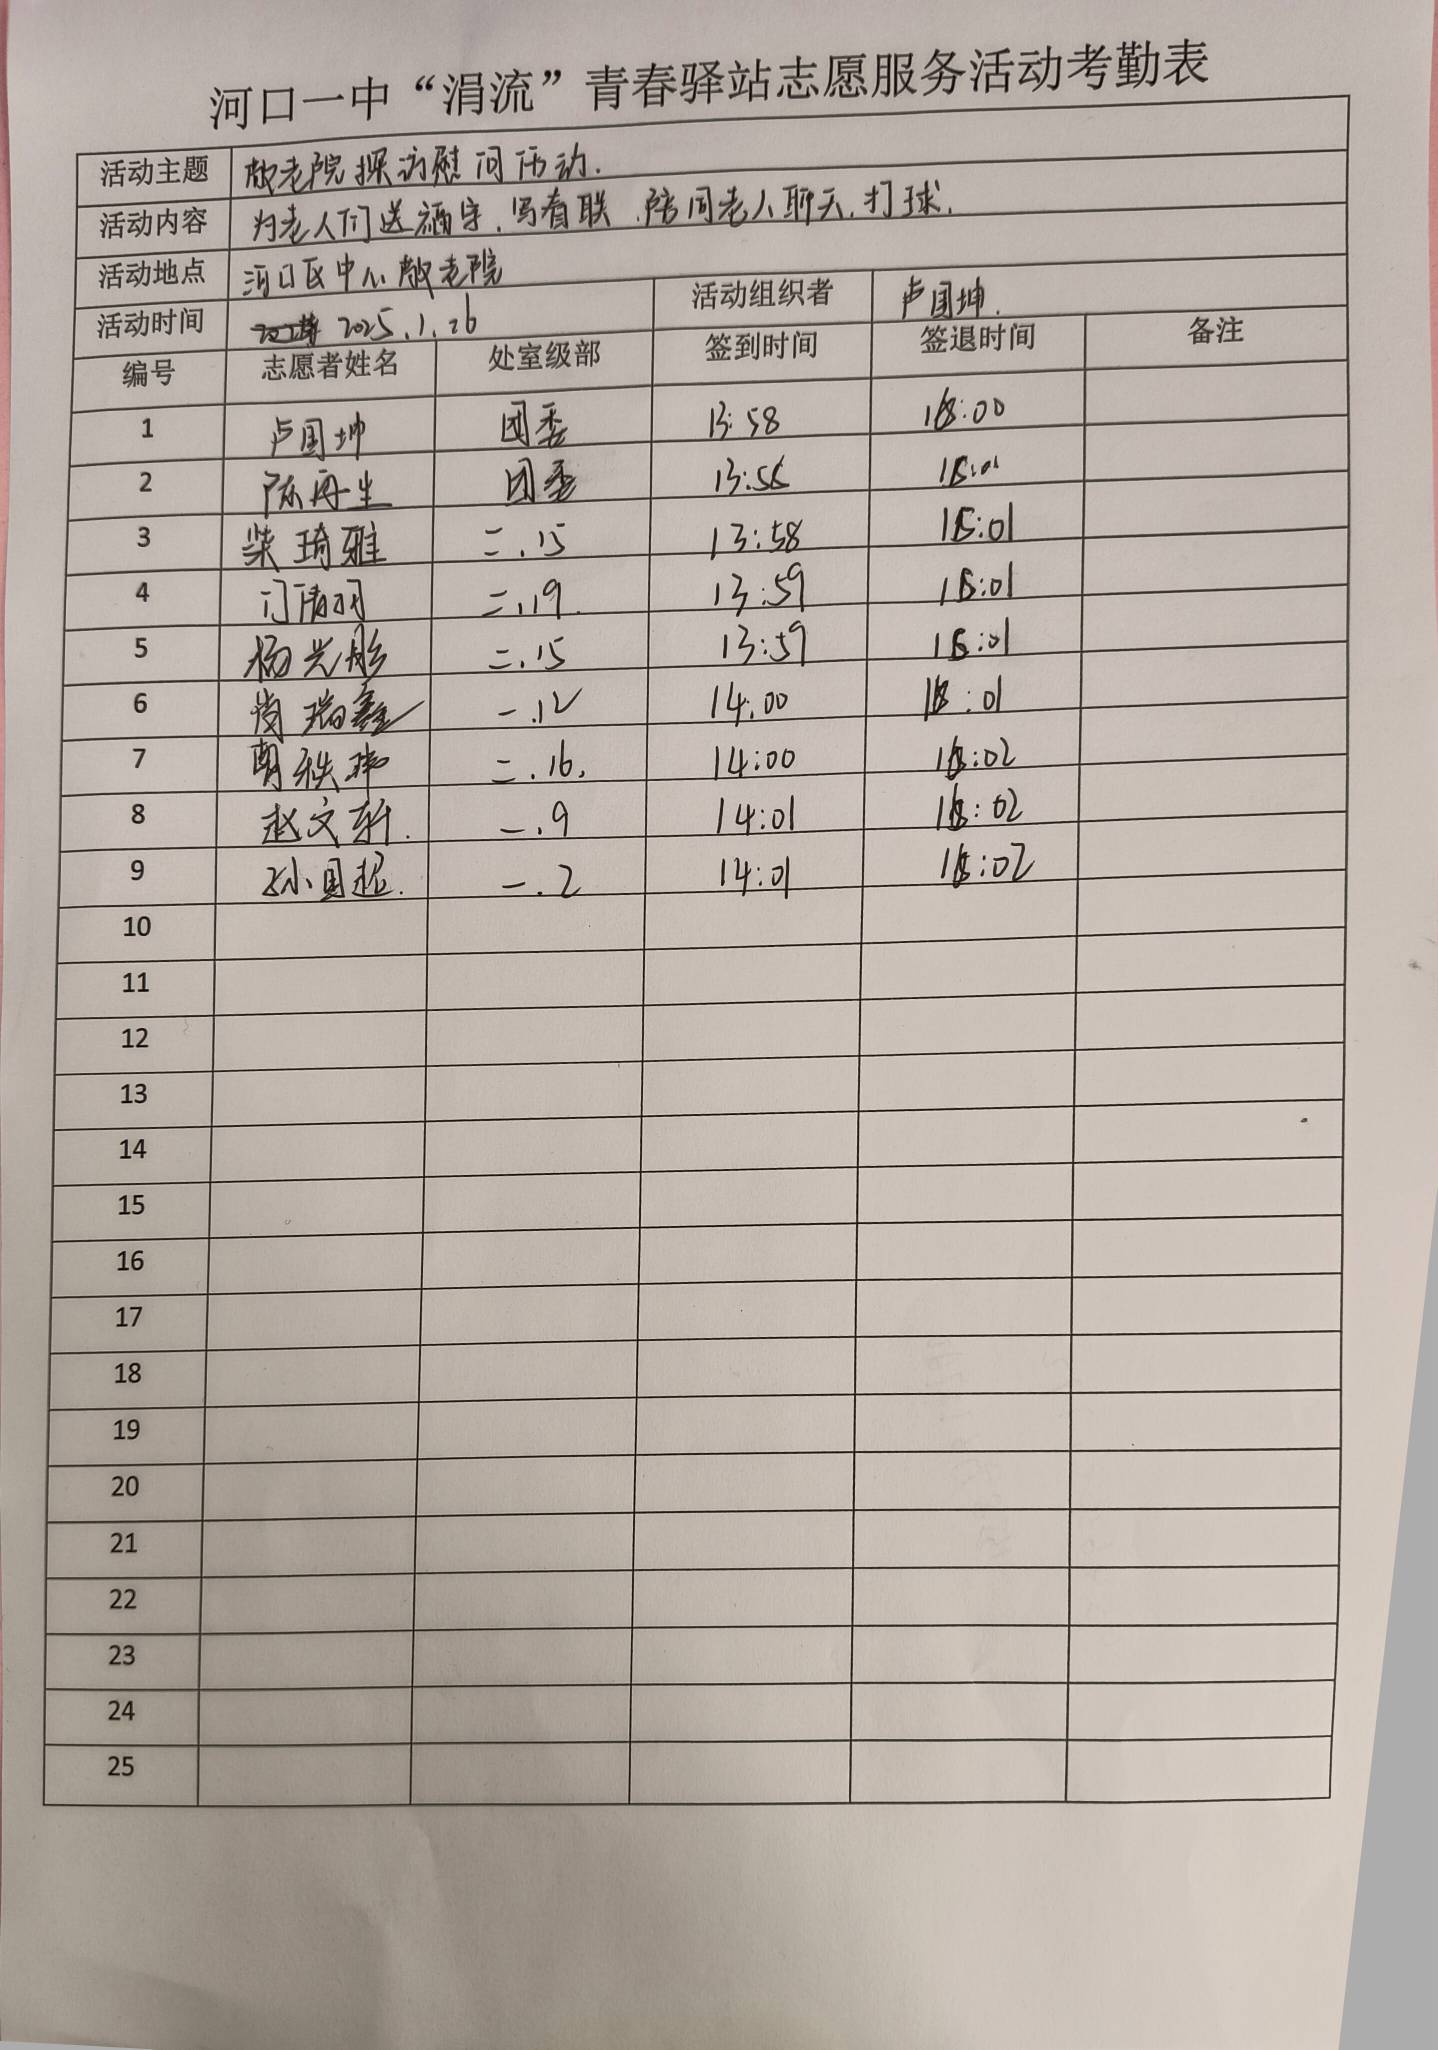 河口一中“涓流”青春驿站志愿服务活动考勤表
活动主题 敬老院探访慰问活动.
活动内容 为老人们送福字、写春联、陪同老人聊天、打球.
活动地点 河口区中心敬老院
活动时间 2025.1.26 活动组织者 卢国坤.
编号 志愿者姓名 处室级部 签到时间 签退时间 备注
1 卢国坤 团委 13:58 :00
2 陈再生 团委 13:56 :01
3 柴琦雅 二.15 13:58 :01
4 门清羽 二.19. 13:59 :01
5 杨兴彤 二.15 13:59 :01
6 尚瑞鑫 一.12 14:00 :01
7 二.16. 14:00 :02
8 赵文轩. 一.9 14:01 :02
9 孙国超. 一.2 14:01 :02
10
11
12
13
14
15
16
17
18
19
20
21
22
23
24
25